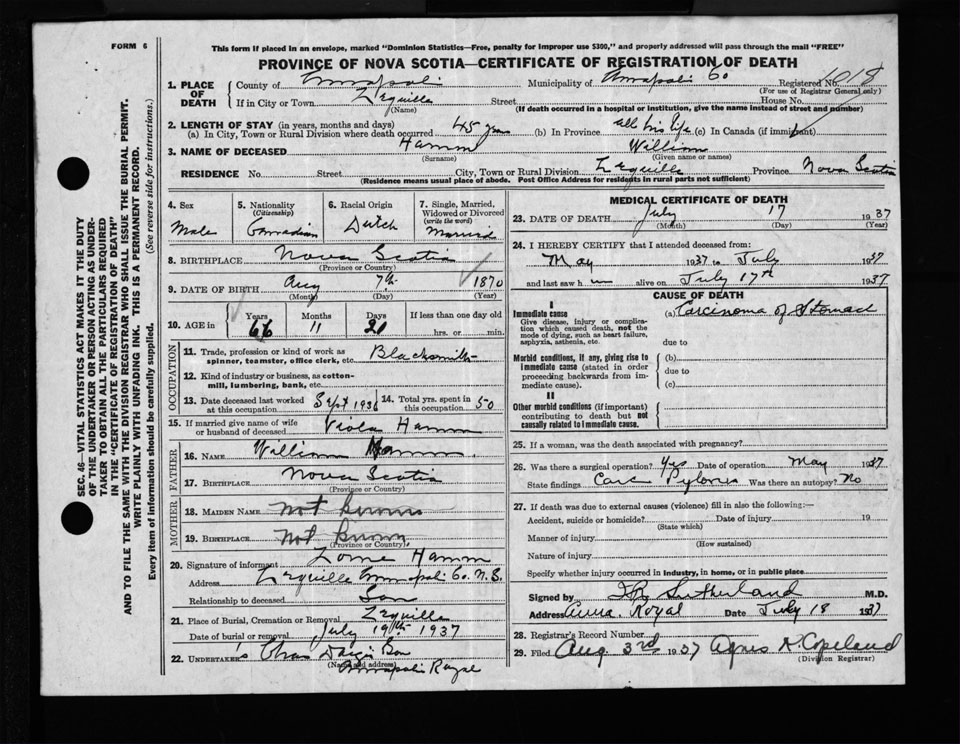 FORM 6
This form if placed in an envelope, marked "Dominion Statistics—Free, penalty for improper use $300," and properly addressed will pass through the mail "FREE"
PROVINCE OF NOVA SCOTIA—CERTIFICATE OF REGISTRATION OF DEATH
1. PLACE OF DEATH County of Annapolis Municipality of Annapolis Co Registered No. 018
(For use of Registrar General only)
If in City or Town Lequille Street House No.
(Name) (If death occurred in a hospital or institution, give the name instead of street and number)
2. LENGTH OF STAY (in years, months and days)
(a) In City, Town or Rural Division where death occurred 45 years (b) In Province all his life (c) In Canada (if immigrant)
3. NAME OF DECEASED Hamm William
(Surname) (Given name or names)
RESIDENCE No. Street City, Town or Rural Division Lequille Province Nova Scotia
(Residence means usual place of abode. Post Office Address for residents in rural parts not sufficient)
4. Sex 5. Nationality (Citizenship) 6. Racial Origin 7. Single, Married, Widowed or Divorced (write the word)
Male Canadian Dutch Married
8. BIRTHPLACE Nova Scotia
(Province or Country)
9. DATE OF BIRTH Aug 7th 1870
(Month) (Day) (Year)
10. AGE in Years Months Days If less than one day old
66 11 hrs. or min.
OCCUPATION
11. Trade, profession or kind of work as spinner, teamster, office clerk, etc. Blacksmith
12. Kind of industry or business, as cotton-mill, lumbering, bank, etc.
13. Date deceased last worked at this occupation Sept 1936 14. Total yrs. spent in this occupation 50
15. If married give name of wife or husband of deceased Viola Hamm
FATHER
16. Name William Hamm
17. Birthplace Nova Scotia
(Province or Country)
MOTHER
18. Maiden Name Not known
19. Birthplace Not known
(Province or Country)
20. Signature of informant Lorne Hamm
Address Lequille Annapolis Co. N.S.
Relationship to deceased Son
21. Place of Burial, Cremation or Removal Lequille
Date of burial or removal July 19th 1937
22. UNDERTAKER's Chas Dargie Son
(Name and address) Annapolis Royal
MEDICAL CERTIFICATE OF DEATH
23. DATE OF DEATH July 17 1937
(Month) (Day) (Year)
24. I HEREBY CERTIFY that I attended deceased from:
May 1937 to July 1937
and last saw him alive on July 17th 1937
CAUSE OF DEATH
I
Immediate cause (a) Carcinoma of Stomach
Give disease, injury or complication which caused death, not the mode of dying, such as heart failure, asphyxia, asthenia, etc. due to
Morbid conditions, if any, giving rise to immediate cause (stated in order proceeding backwards from immediate cause). (b)
due to
(c)
II
Other morbid conditions (if important) contributing to death but not causally related to immediate cause.
25. If a woman, was the death associated with pregnancy?
26. Was there a surgical operation? Yes Date of operation May 1937
State findings Carc Pylorus Was there an autopsy? No
27. If death was due to external causes (violence) fill in also the following:—
Accident, suicide or homicide? Date of injury 19
(State which)
Manner of injury
(How sustained)
Nature of injury
Specify whether injury occurred in industry, in home, or in public place
Signed by Sutherland M.D.
Address Anna. Royal Date July 18 1937
28. Registrar's Record Number
29. Filed Aug. 3rd 1937 Agnes Copeland
(Division Registrar)
SEC. 46—VITAL STATISTICS ACT MAKES IT THE DUTY
OF THE UNDERTAKER OR PERSON ACTING AS UNDER-
TAKER TO OBTAIN ALL THE PARTICULARS REQUIRED
IN THE "CERTIFICATE OF REGISTRATION OF DEATH"
AND TO FILE THE SAME WITH THE DIVISION REGISTRAR WHO SHALL ISSUE THE BURIAL PERMIT.
WRITE PLAINLY WITH UNFADING INK. THIS IS A PERMANENT RECORD.
Every item of information should be carefully supplied. (See reverse side for instructions.)